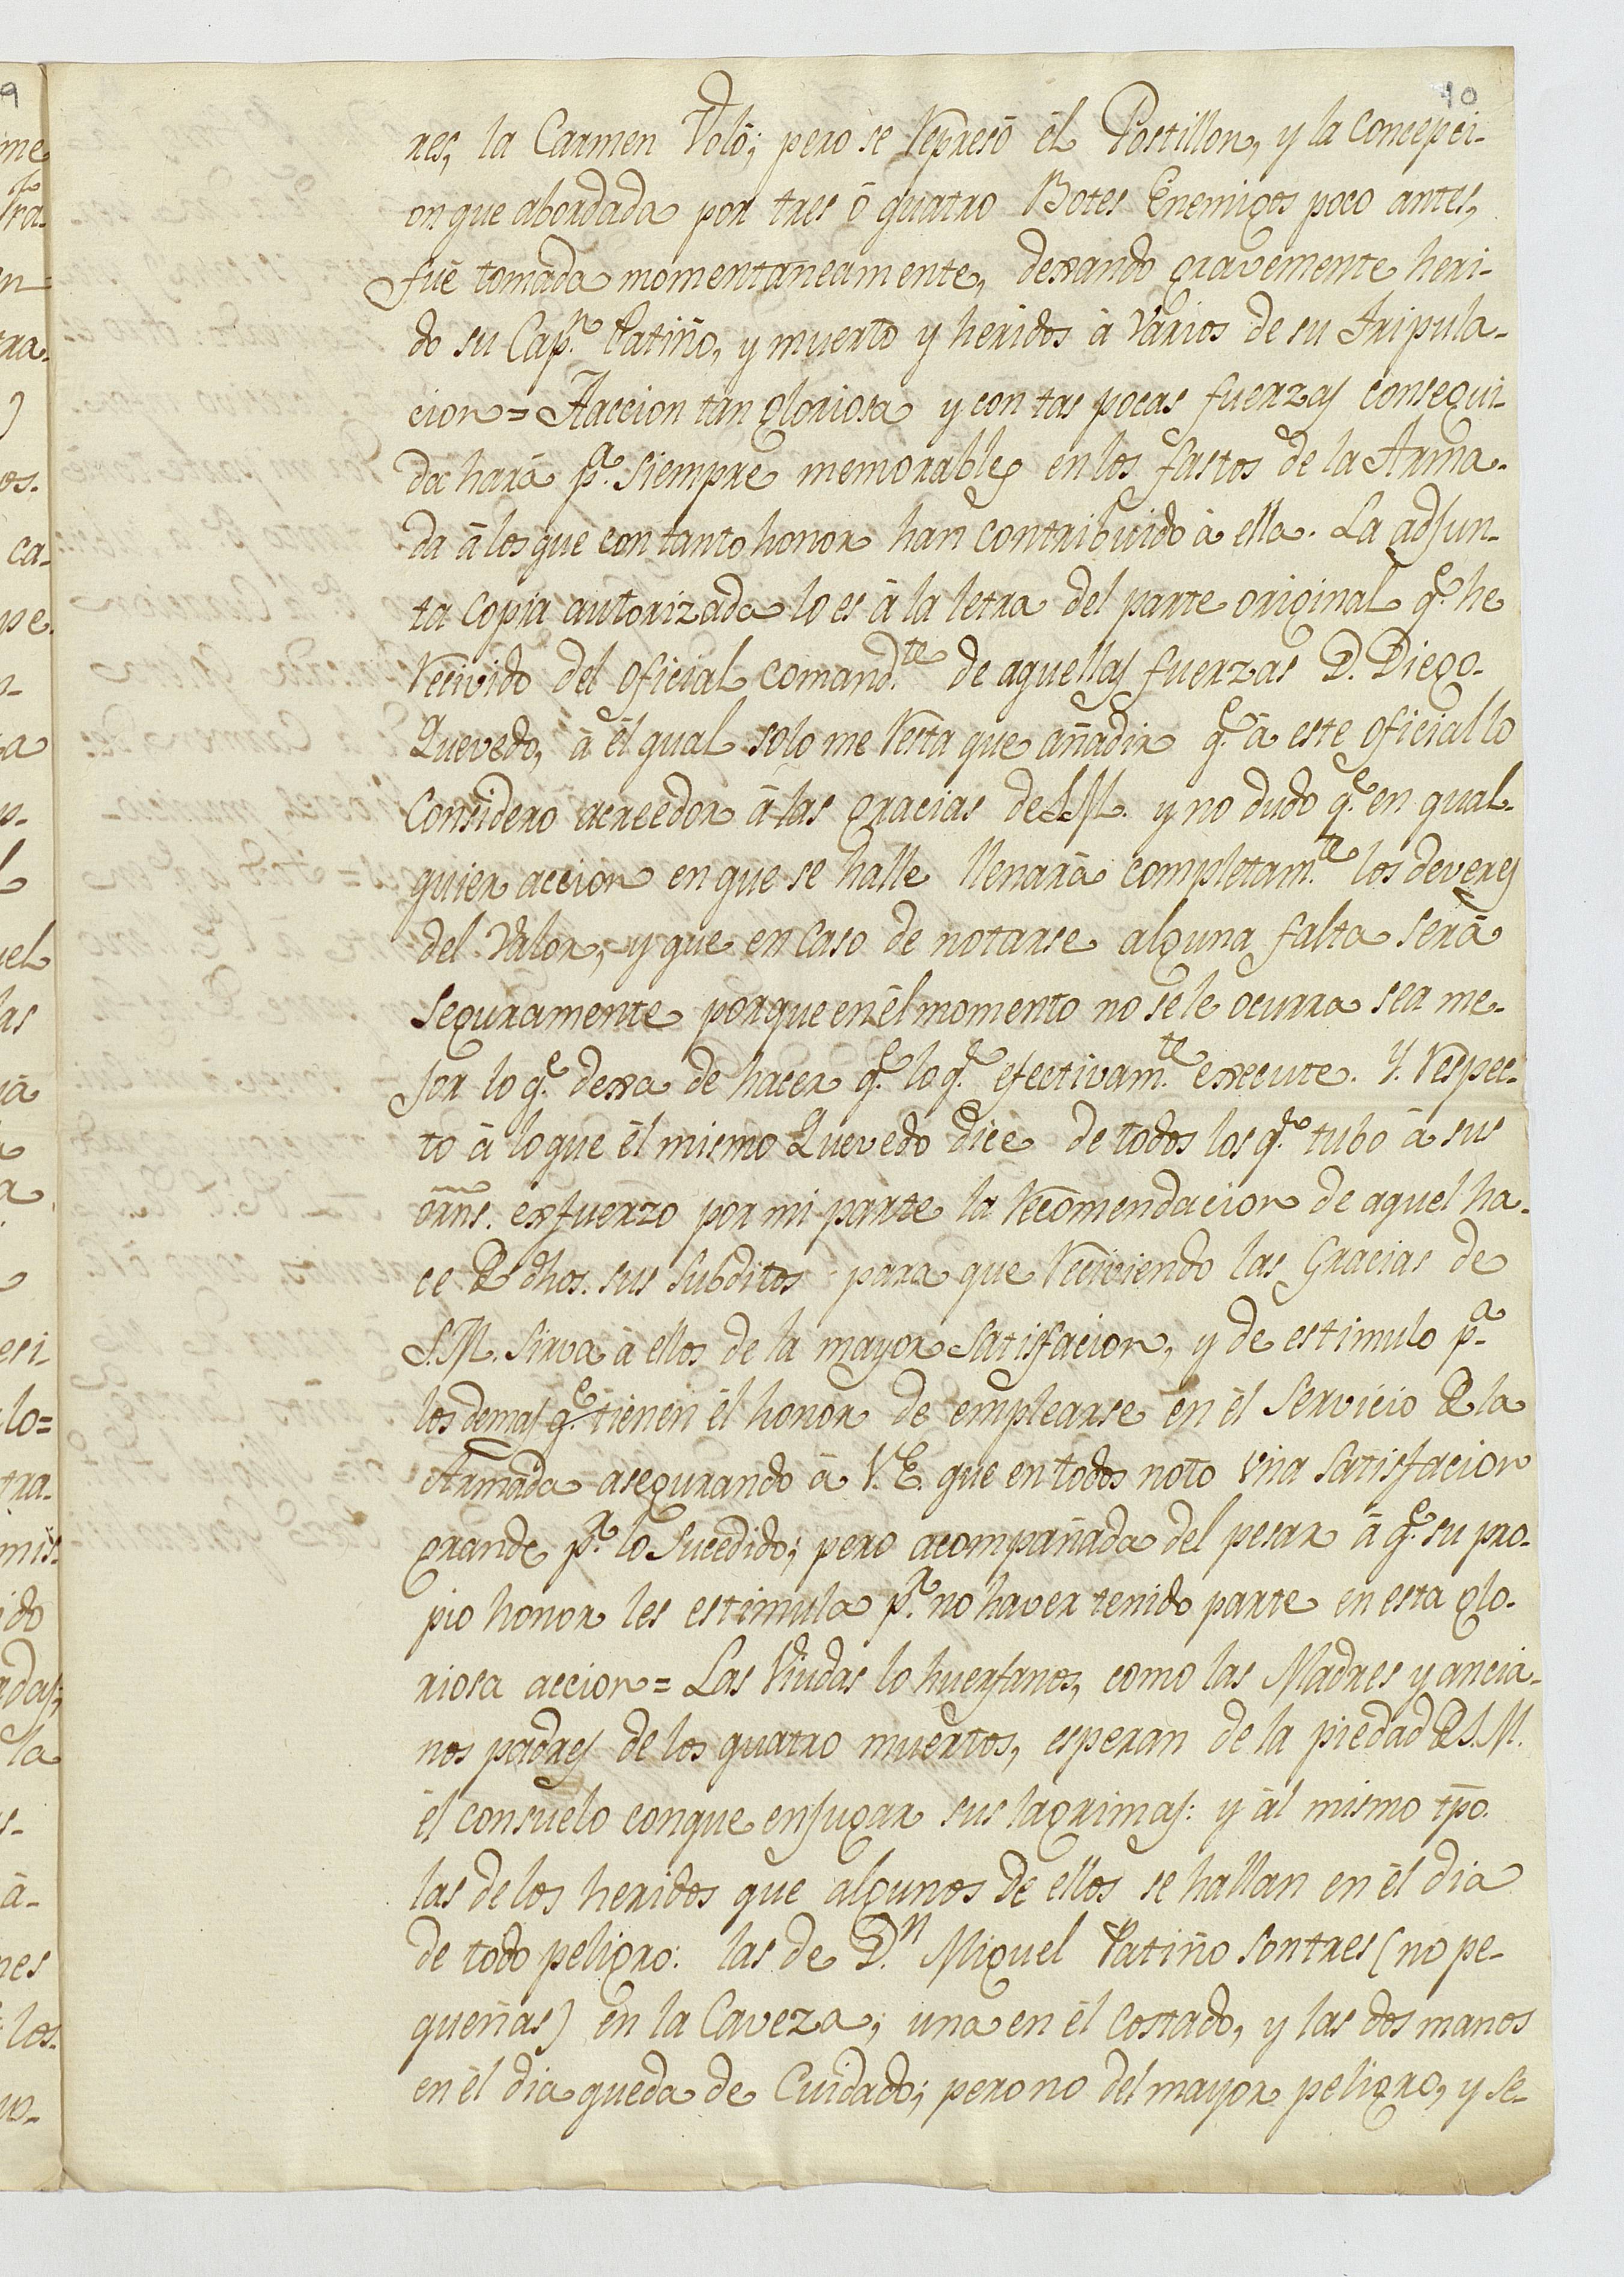 10
res, la Carmen Voló; pero se represó él Postillon, y la Concepci-
on que abordada por tres ó quatro Botes Enemigos poco antes,
fué tomada momentaneamente, dexando gravemente heri-
do su Cap.n Patiño, y muerto y heridos á varios de su tripula-
cion = Aaccion tan gloriosa y con tas pocas fuerzas consegui-
da hará p.a siempre memorables en los fastos de la Arma-
da á los que con tanto honor han contribuido á ella. La adjun-
ta copia autorizada lo es á la letra del parte original q.e he
recivido del oficial comand.te de aquellas fuerzas D. Diego
Quevedo, á él qual solo me resta que añadir q.e á este oficial lo
considero acreedor á las gracias de S.M. y no dudo q.e en qual-
quier accion en que se halle llenará completam.te los deveres
del Valor, y que en caso de notarse alguna falta será
seguramente porque en él momento no se le ocurra sea me-
jor lo q.e dexa de hacer q.e lo q.e efectivam.te execute. Y. respec-
to á lo que él mismo Quevedo dice de todos los q.e tubo á sus
orns. exfuerzo por mi parte la recomendacion de aquel ha-
ce de dhos. sus subditos para que reciviendo las Gracias de
S.M. sirva á ellos de la mayor satisfacion, y de estimulo p.a
los demas q.e tienen él honor de emplearse en él servicio de la
Armada asegurando á V.E. que en todos noto una satisfacion
grande p.r lo sucedido; pero acompañada del pesar á q.e su pro-
pio honor les estimula p.r no haver tenido parte en esta glo-
riosa accion = Las Viudas lo huerfanos, como las Madres y ancia-
nos padres de los quatro muertos, esperan de la piedad de S.M.
él consuelo conque enjugar sus lagrimas: y ál mismo tpo.
las de los heridos que algunos de ellos se hallan en él dia
de todo peligro: las de D.n Miguel Patiño son tres (no pe-
queñas) en la Caveza; una en él costado, y las dos manos
en él dia queda de Cuidado; pero no del mayor peligro, y se-